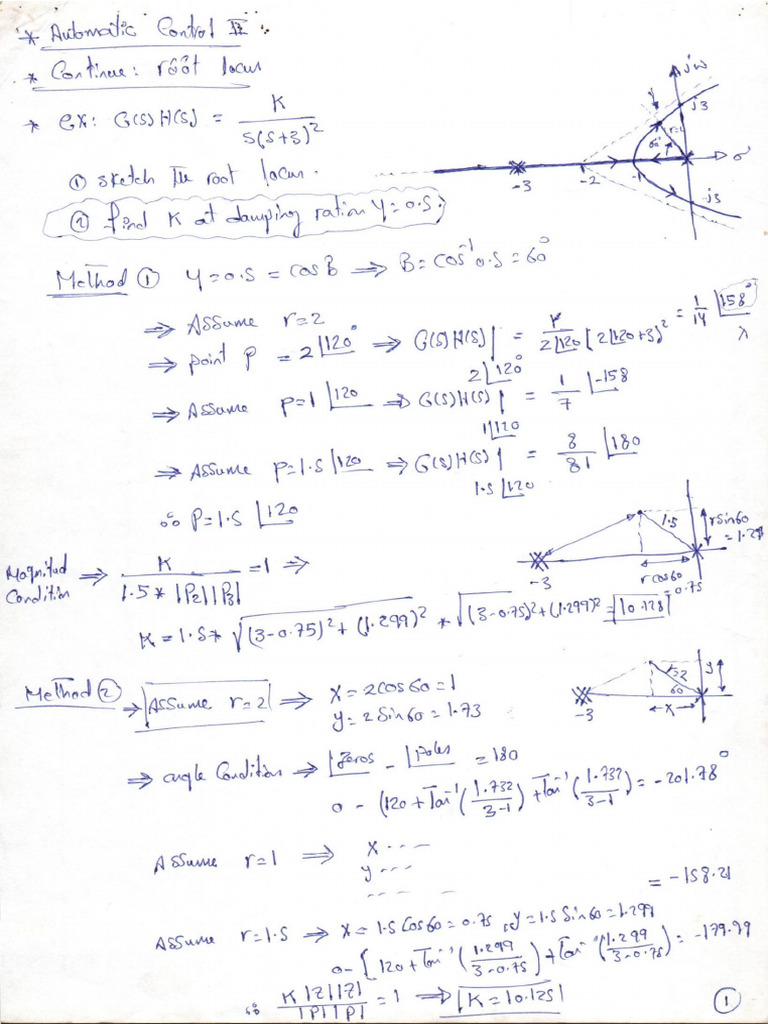 * Automatic Control II :
* Continue : root locus
* ex: G(s)H(s) = K / s(s+3)²
① sketch the root locus.
② find K at damping ration Y=0.5;
jω
j3
r=2
60°
σ
-3
-2
-1
-j3
Method ① Y=0.5 = cosB ⇒ B=cos⁻¹0.5=60°
⇒ Assume r=2
⇒ point P = 2∠120° ⇒ G(s)H(s)|2∠120° = K / 2∠120 [2∠120+3]² = 1/14 ∠158°
⇒ Assume P=1∠120 ⇒ G(s)H(s)|1∠120 = 1/7 ∠-158
⇒ Assume P=1.5∠120 ⇒ G(s)H(s)|1.5∠120 = 8/81 ∠180
∴ P=1.5∠120
1.5
rsin60
=1.29
-3
rcos60
=0.75
Magnitud Condition ⇒ K / 1.5*|P2||P3| =1 ⇒
K=1.5* √(3-0.75)²+(1.299)² * √(3-0.75)²+(1.299)² = 10.128
Method ② → Assume r=2 ⇒ x=2cos60=1
y=2sin60=1.73
r=2
60
y
-3
x
⇒ angle Condition ⇒ ∠Zeros - ∠Poles = 180
0 - (120+Tan⁻¹(1.732/3-1)+Tan⁻¹(1.732/3-1) = -201.78°
Assume r=1 ⇒ x ---
y ---
--- -- = -158.21
Assume r=1.5 ⇒ x=1.5cos60=0.75, y=1.5sin60=1.299
0-{120+Tan⁻¹(1.299/3-0.75)+Tan⁻¹(1.299/3-0.75) = -179.99
∴ K|Z||Z| / |P||P| =1 ⇒ K=10.125
①